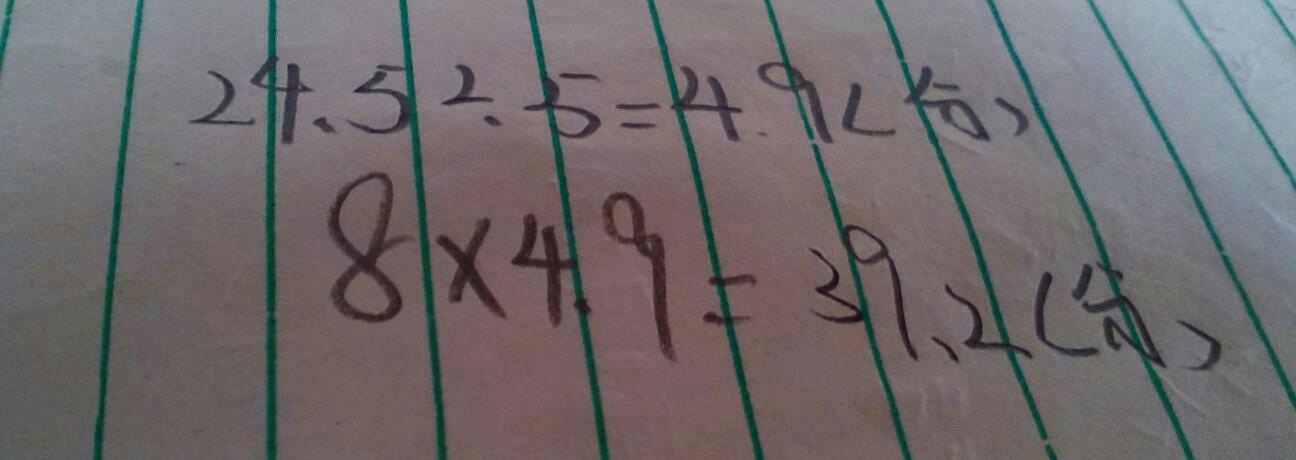 24.5÷5=4.9(分)
8×4.9=39.2(分)